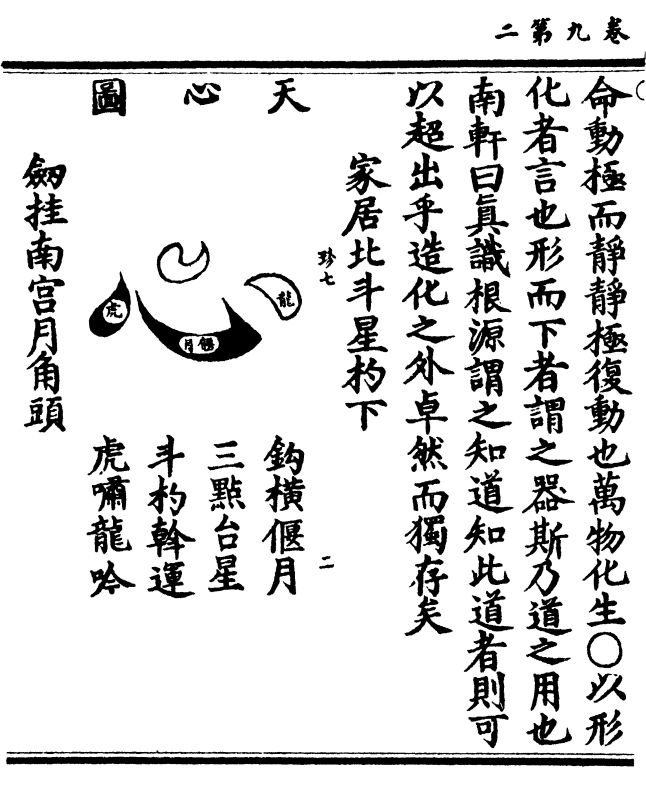 卷九第二
命動極而靜靜極復動也萬物化生〇以形
化者言也形而下者謂之器斯乃道之用也
南軒曰眞識根源謂之知道知此道者則可
以超出乎造化之外卓然而獨存矣
家居北斗星杓下
珍七
二
天心圖
龍
偃月
虎
鈎橫偃月
三點台星
斗杓斡運
虎嘯龍吟
劒挂南宮月角頭